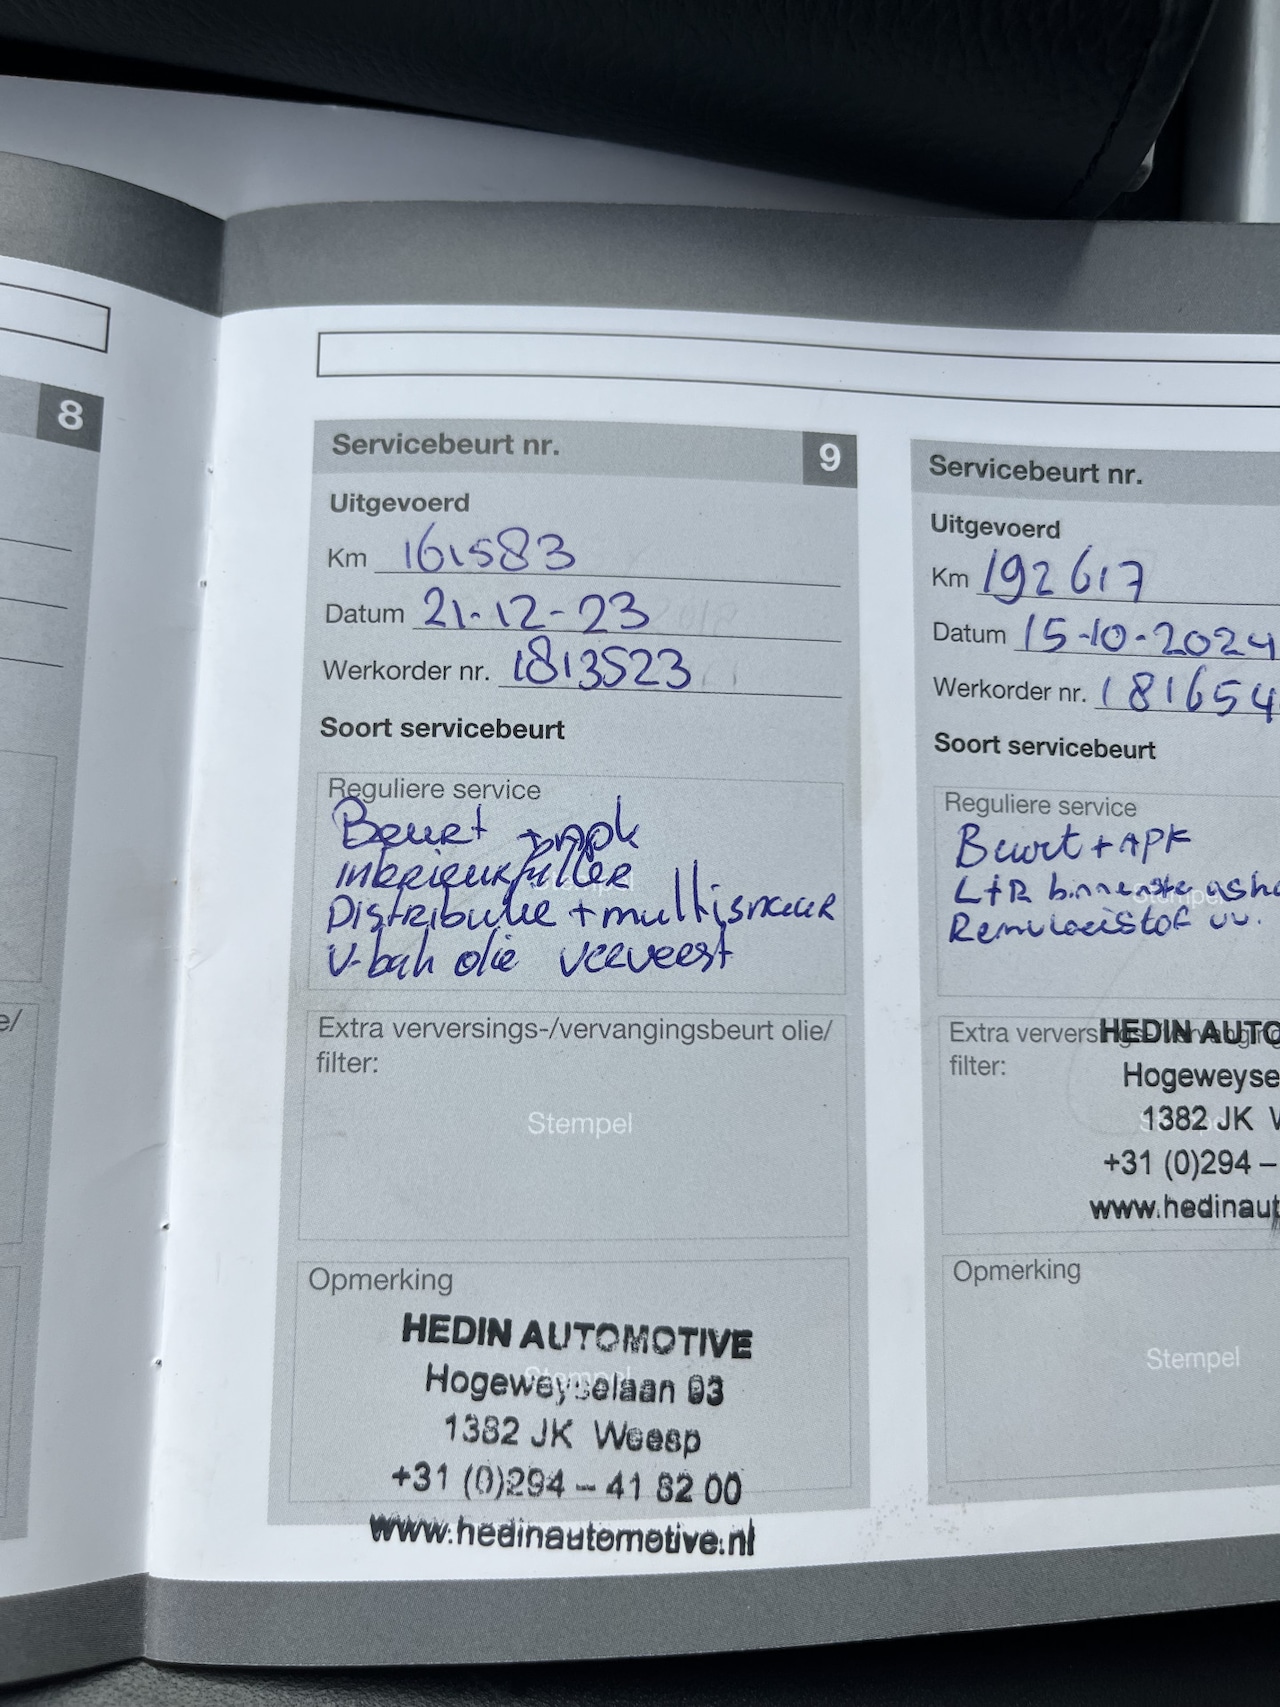 8
Servicebeurt nr. 9
Uitgevoerd
Km 161583
Datum 21-12-23
Werkorder nr. 1813523
Soort servicebeurt
Reguliere service
Beurt + apk
interieurfilter
Distributie + multisnaar
V-bak olie ververst
Extra verversings-/vervangingsbeurt olie/
filter:
Stempel
Opmerking
Stempel
HEDIN AUTOMOTIVE
Hogeweyselaan 93
1382 JK Weesp
+31 (0)294 – 41 82 00
www.hedinautomotive.nl
Servicebeurt nr.
Uitgevoerd
Km 192617
Datum 15-10-2024
Werkorder nr. 181654
Soort servicebeurt
Reguliere service
Beurt + APK
L+R binnenste asho
Remvloeistof vv.
Extra verversings-/vervanging
filter:
Stempel
HEDIN AUTO
Hogeweyse
1382 JK W
+31 (0)294 –
www.hedinaut
Opmerking
Stempel
e/